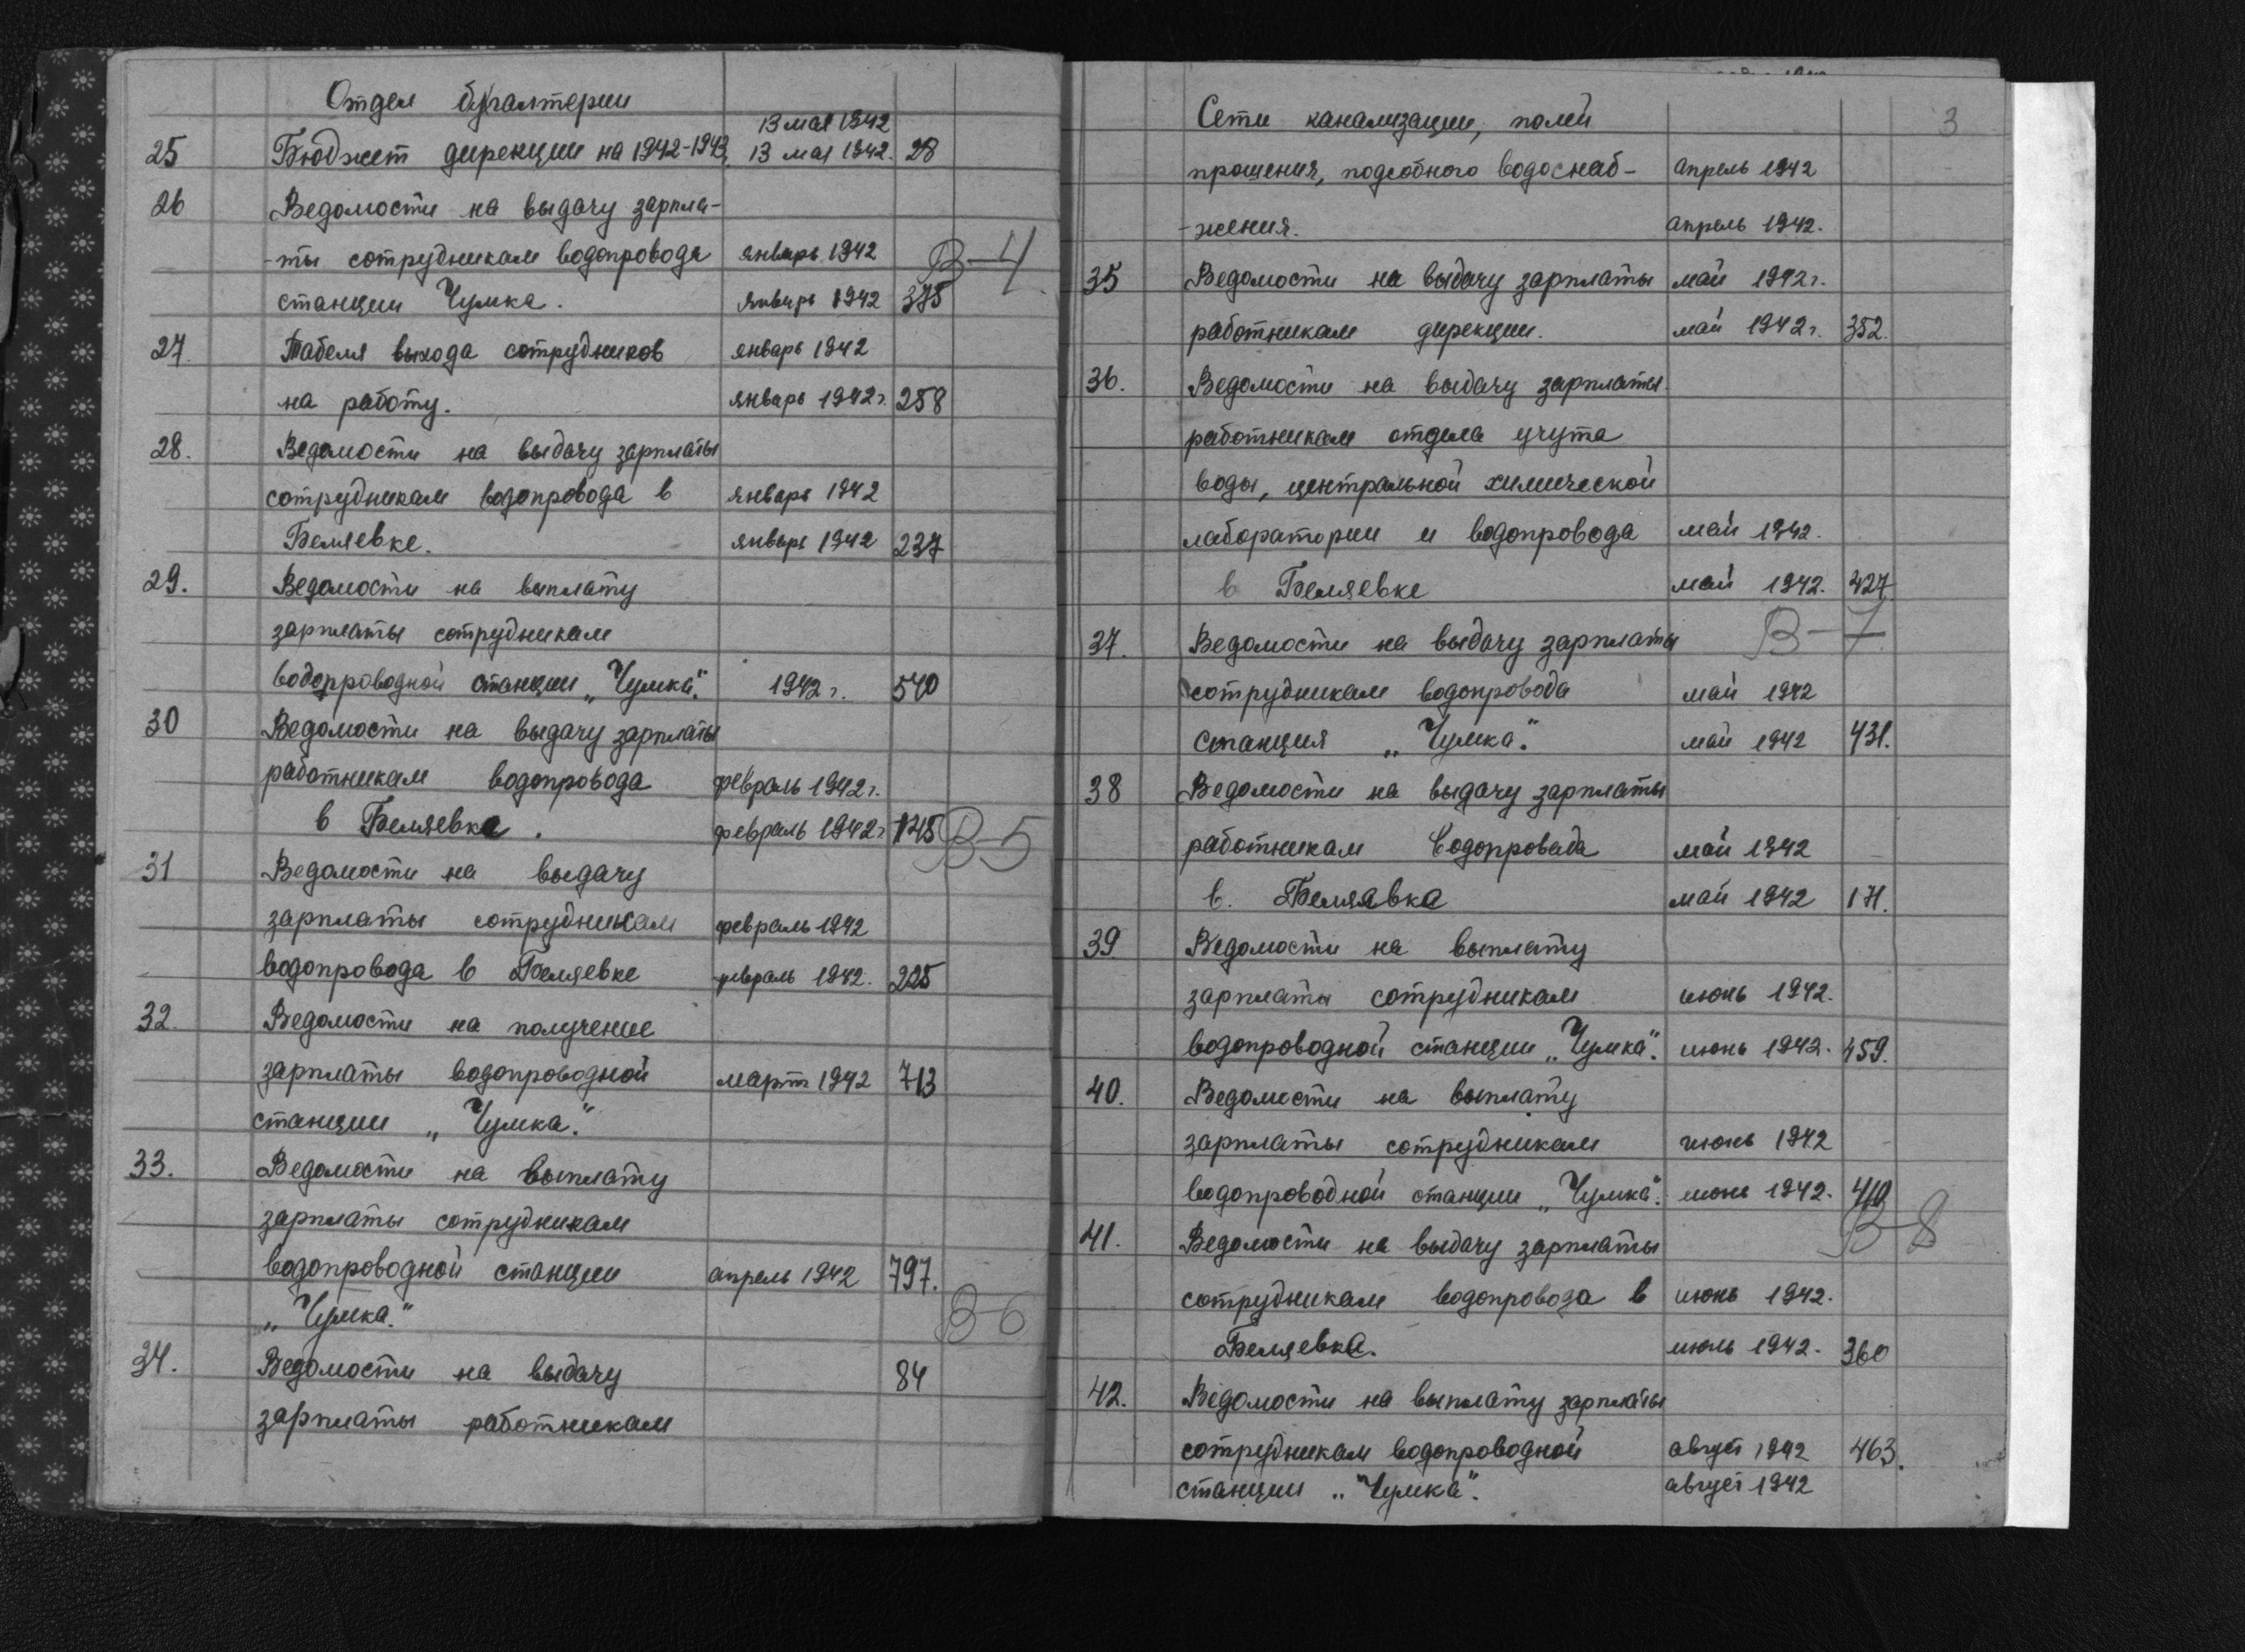 Отдел бухгалтерии
13 мая 1942
25 Бюджет дирекции на 1942-1943, 13 мая 1942. 28
26 Ведомости на выдачу зарпла-
-ты сотрудникам водопровода январь 1942 В-4
станции Чумка. январь 1942 375
27. Табеля выхода сотрудников январь 1942
на работу. январь 1942 г. 258
28. Ведомости на выдачу зарплаты
сотрудникам водопровода в январь 1942
Беляевке. январь 1942 237
29. Ведомости на выплату
зарплаты сотрудникам
водопроводной станции „Чумка". 1942 г. 540
30 Ведомости на выдачу зарплаты
работникам водопровода февраль 1942 г.
в Беляевке. февраль 1942 г 145 В-5
31 Ведомости на выдачу
зарплаты сотрудникам февраль 1942
водопровода в Беляевке февраль 1942. 225
32. Ведомости на получение
зарплаты водопроводной март 1942 713
станции „Чумка".
33. Ведомости на выплату
зарплаты сотрудникам
водопроводной станции апрель 1942 797.
„Чумка". В-6
34. Ведомости на выдачу 84
зарплаты работникам
3
Сети канализации, полей
прошения, подсобного водоснаб- апрель 1942
-жения. апрель 1942.
35 Ведомости на выдачу зарплаты май 1942 г.
работникам дирекции. май 1942 г. 352.
36. Ведомости на выдачу зарплаты.
работникам отдела учута
воды, центральной химической
лаборатории и водопровода май 1942.
в Беляевке май 1942. 427.
37. Ведомости на выдачу зарплаты В-7
сотрудникам водопровода май 1942
станция „Чумка". май 1942 431.
38 Ведомости на выдачу зарплаты
работникам Водопровода май 1942
в. Беляавка май 1942 171.
39 Ведомости на выплату
зарплаты сотрудникам июнь 1942.
водопроводной станции „Чумка". июнь 1942. 459.
40. Ведомости на выплату
зарплаты сотрудникам июнь 1942
водопроводной станции „Чумка". июнь 1942. 410
41. Ведомости на выдачу зарплаты В-8
сотрудникам водопровода в июнь 1942.
Беляевка. июнь 1942. 360
42. Ведомости на выплату зарплаты
сотрудникам водопроводной август 1942 463.
станции „Чумка". август 1942